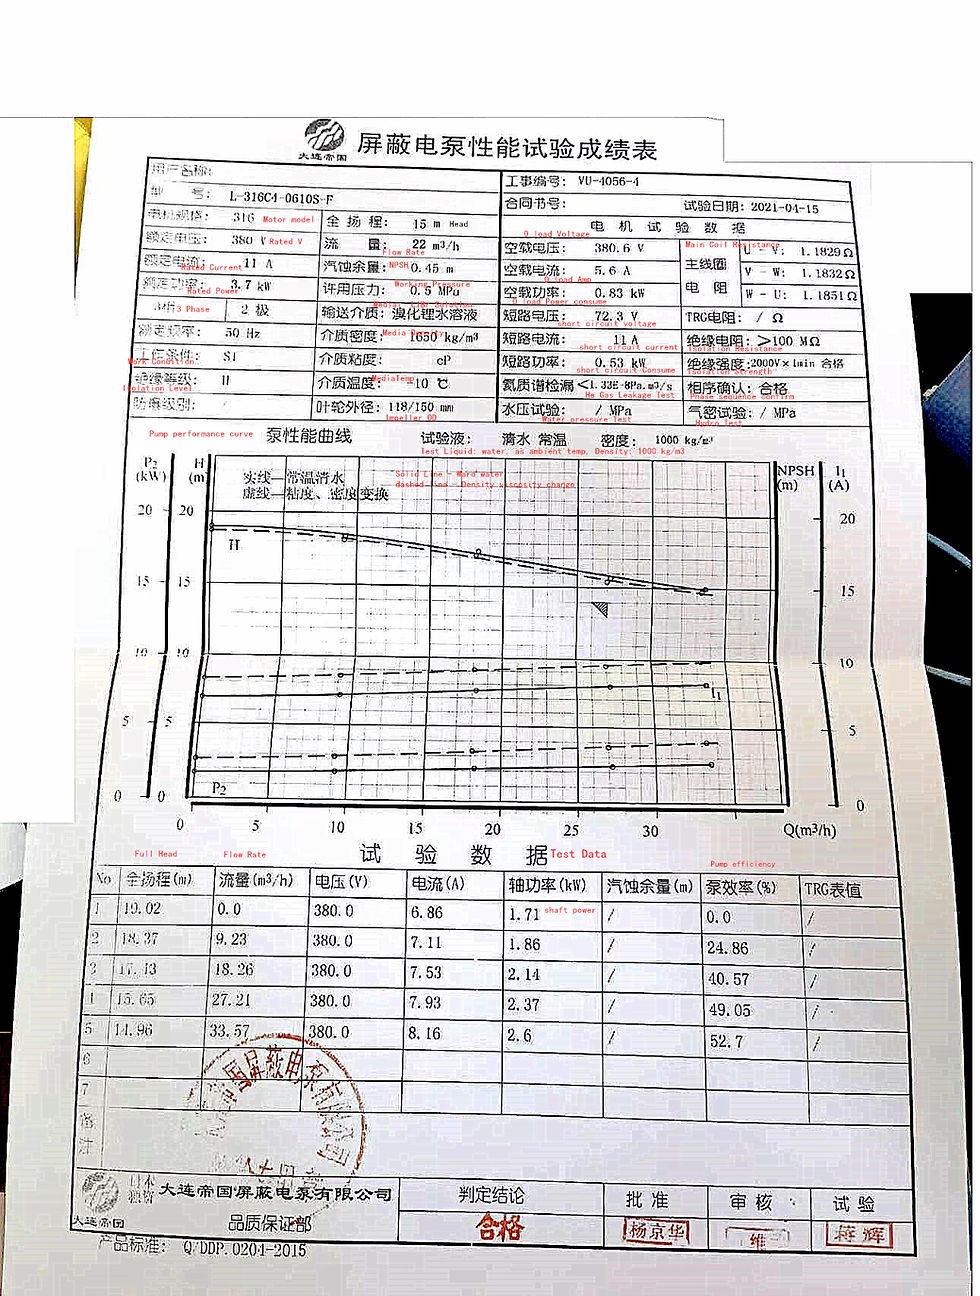 屏蔽电泵性能试验成绩表
大连帝国
用户名称:
工事编号: VU-4056-4
型 号: L-316C4-0610S-F
合同书号: 试验日期: 2021-04-15
电机规格: 316 Motor model
全 扬 程: 15 m Head
电 机 试 验 数 据
额定电压: 380 V Rated V
流 量: 22 m³/h
Flow Rate
O load Voltage
空载电压: 380.6 V
Main Coil Resistance
主线圈
电 阻
U - V: 1.1829 Ω
V - W: 1.1832 Ω
W - U: 1.1851 Ω
额定电流: 11 A
Rated Current
汽蚀余量: NPSH 0.45 m
空载电流: 5.6 A
O load Amp
额定功率: 3.7 kW
Rated Power
许用压力: 0.5 MPa
Working Pressure
空载功率: 0.83 kW
O load Power consume
3 Phase 2 极
输送介质: 溴化锂水溶液
短路电压: 72.3 V
short circuit voltage
TRG电阻: / Ω
额定频率: 50 Hz
介质密度: 1650 kg/m3
Media Density
短路电流: 11 A
short circuit current
绝缘电阻: >100 MΩ
Isolation Resistance
工作条件: S1
Work Condition
介质粘度: cP
短路功率: 0.53 kW
short circuit Consume
绝缘强度: 2000V×1min 合格
Isolation Strength
绝缘等级: H
Isolation Level
介质温度: 10 ℃
MediaTemp
氦质谱检漏 <1.33E-8Pa.m3/s
He Gas Leakage Test
相序确认: 合格
Phase sequence confirm
防爆级别: /
叶轮外径: 118/150 mm
Impeller OD
水压试验: / MPa
Water pressure Test
气密试验: / MPa
Hydro Test
Pump performance curve 泵性能曲线 试验液: 清水 常温 密度: 1000 kg/m³
Test Liquid: water, as ambient temp, Density: 1000 kg/m3
P2 (kW) H (m)
NPSH (m) I1 (A)
实线—常温清水
Solid Line - Ward water
虚线—粘度、密度变换
dashed line - Density viscosity change
20 20 20
H
15 15 15
10 10 10
I1
5 5 5
P2
0 0 0
0 5 10 15 20 25 30 Q(m³/h)
试 验 数 据 Test Data
Full Head Flow Rate Pump efficiency
No 全扬程(m) 流量(m³/h) 电压(V) 电流(A) 轴功率(kW) 汽蚀余量(m) 泵效率(%) TRG表值
1 19.02 0.0 380.0 6.86 1.71 shaft power / 0.0 /
2 18.37 9.23 380.0 7.11 1.86 / 24.86 /
3 17.43 18.26 380.0 7.53 2.14 / 40.57 /
4 15.65 27.21 380.0 7.93 2.37 / 49.05 /
5 14.96 33.57 380.0 8.16 2.6 / 52.7 /
6
7
备注
国屏蔽电泵有限公司
日本独资 大连帝国屏蔽电泵有限公司
大连帝国
品质保证部
判定结论 批 准 审 核 试 验
合格 杨京华 维 蒋辉
产品标准: Q/DDP.0204-2015